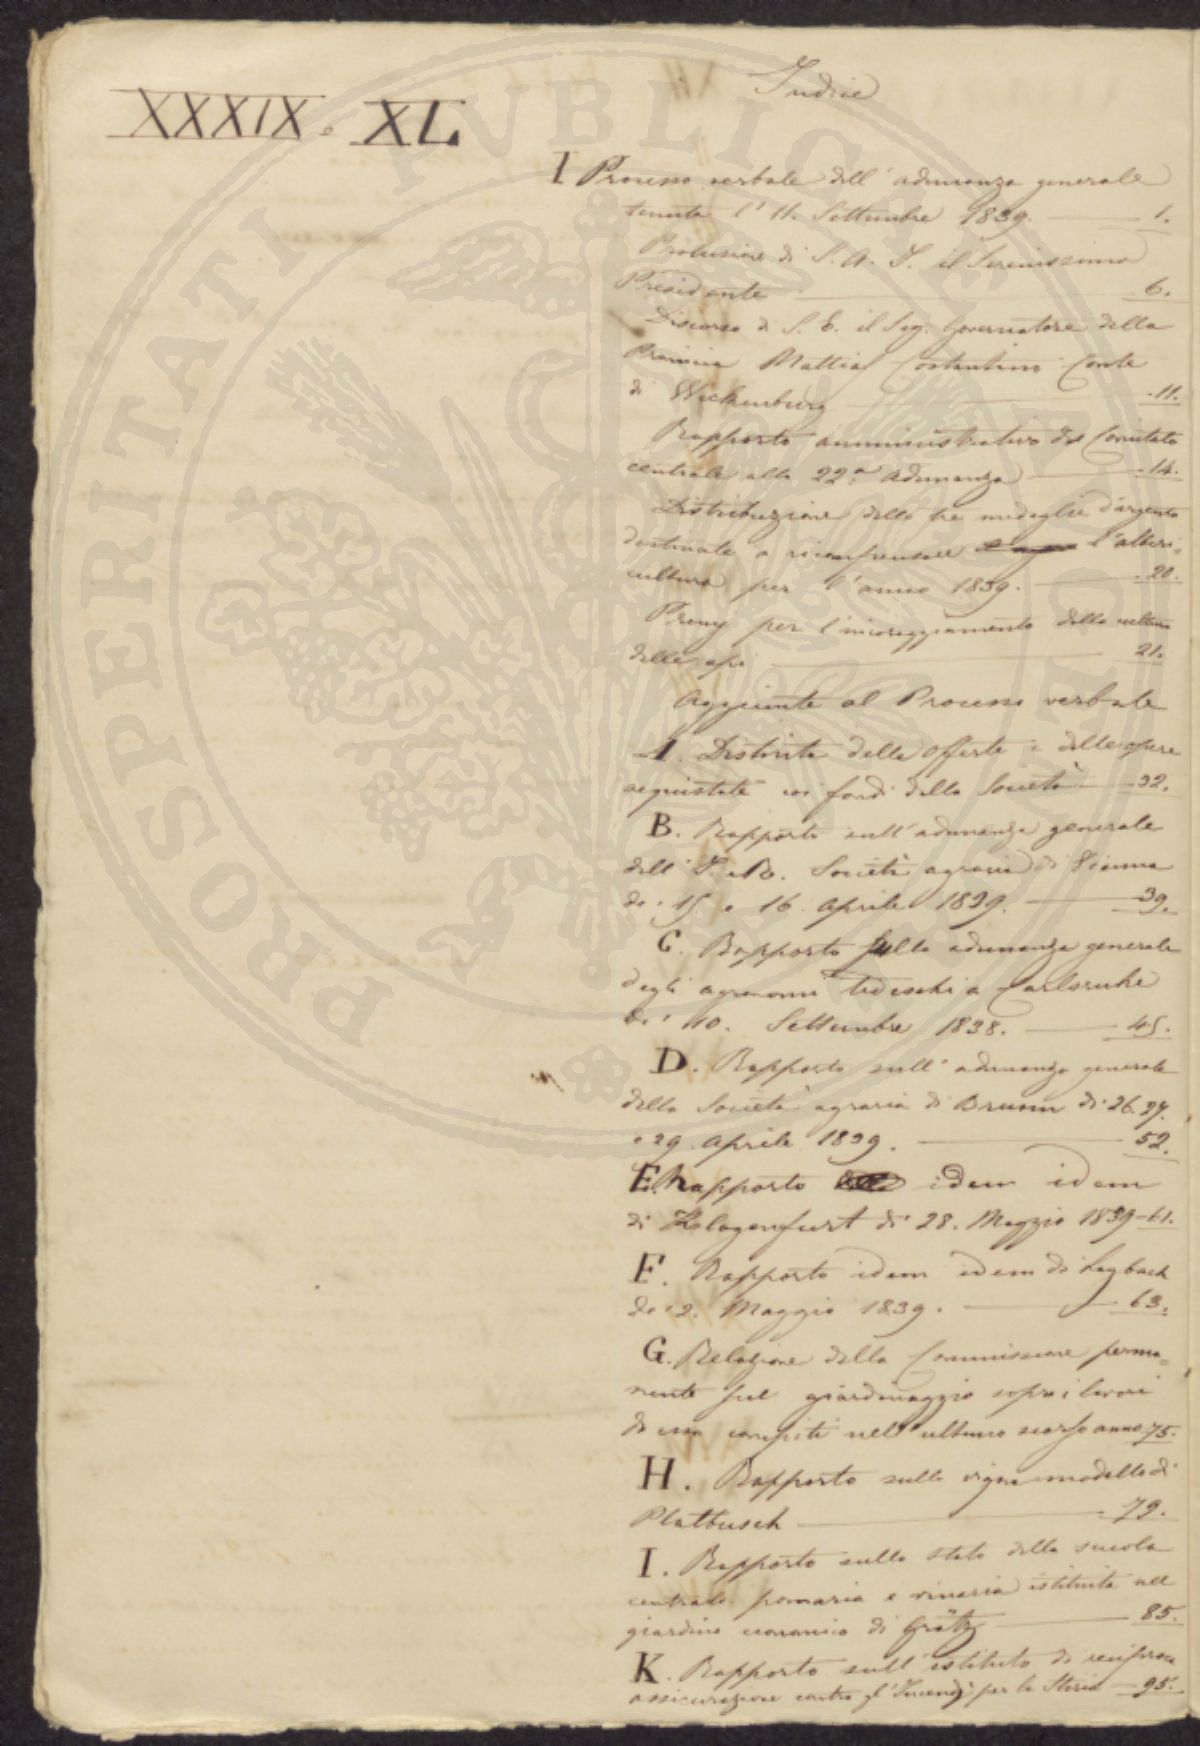 Indice
XXXIX e XL
I Processo verbale dell' adunanza generale
tenuta l' 11. Settembre 1839. 1.
Prolusione di S. A. I. il Serenissimo
Presidente 6.
Discorso di S. E. il Sig. Governatore della
Provincia Mattia Costantino Conte
di Wickenburg 11.
Rapporto amministrativo del Comitato
centrale alla 22.a adunanza 14.
Distribuzione delle tre medaglie d'argento
destinate a ricompensare l'alberi-
cultura per l'anno 1839. 20.
Premj per l'incoraggiamento della cultura
delle api 21.
Aggiunte al Processo verbale
A. Distinta delle offerte e delle opere
acquistate coi fondi della Società 32.
B. Rapporto sull'adunanza generale
dell' I. R. Società agraria di Vienna
de' 15. e 16. Aprile 1839. 39.
C. Rapporto sulla adunanza generale
degli agronomi tedeschi a Carlsruhe
de' 10. Settembre 1838. 45.
D. Rapporto sull' adunanza generale
della Società agraria di Brunn di 26. 27.
e 29. Aprile 1839. 52.
E. Rapporto idem idem
di Klagenfurt di 28. Maggio 1839 61.
F. Rapporto idem idem di Laybach
de' 2. Maggio 1839. 63.
G. Relazione della Commissione perma-
nente sul giardinaggio sopra i lavori
di essa compiti nell' ultimo scorso anno 75.
H. Rapporto sulla vigna modello di
Plattusch 79.
I. Rapporto sullo stato della scuola
centrale pomaria e vinaria istituita nel
giardino di Grätz 85.
K. Rapporto sull' istituto di reciproca
assicurazione contro gl' Incendj per la Stiria 95.
PROSPERITATI PVBLICAE AVGENDAE